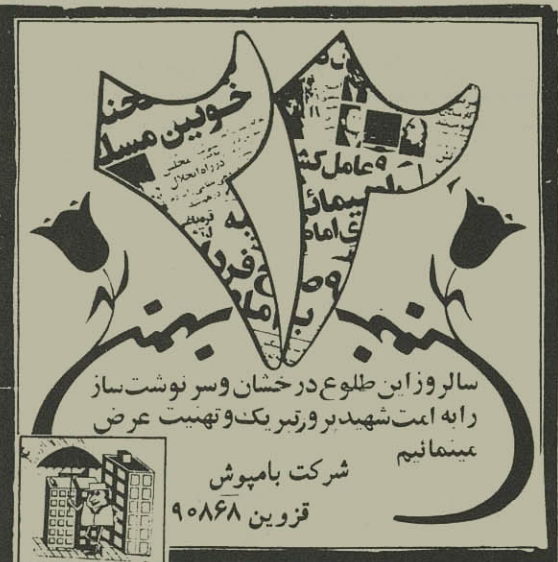 ۲۲
خونین مسلـ
و عامل کشـ
در راه انحلال
بهمن
سالروز این طلوع درخشان و سرنوشت‌ساز
را به امت شهیدپرور تبریک و تهنیت عرض
مینمائیم
شرکت بامپوش
قزوین ۹۰۸۶۸